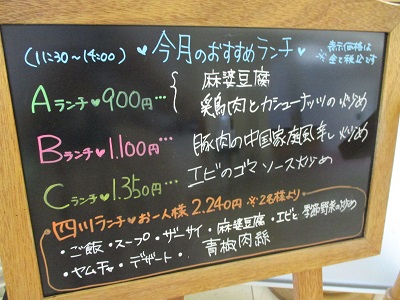 (11:30～14:00) ♥今月のおすすめランチ♥ ※表示価格は
全て税込です
Aランチ♥900円… 麻婆豆腐
鶏肉とカシューナッツの炒め
Bランチ♥1.100円… 豚肉の中国家庭風辛し炒め
Cランチ♥1.350円… エビのゴマソース炒め
四川ランチ♥お一人様 2.240円 ※2名様より
・ご飯・スープ・ザーサイ・麻婆豆腐・エビと季節野菜の炒め
・ヤムチャ・デザート・青椒肉絲